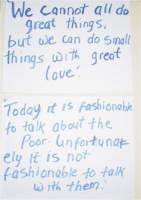 "We cannot all do
great things,
but we can do small
things with great
love."
"Today it is fashionable
to talk about the
Poor. Unfortunat-
ely it is not
fashionable to talk
with them."